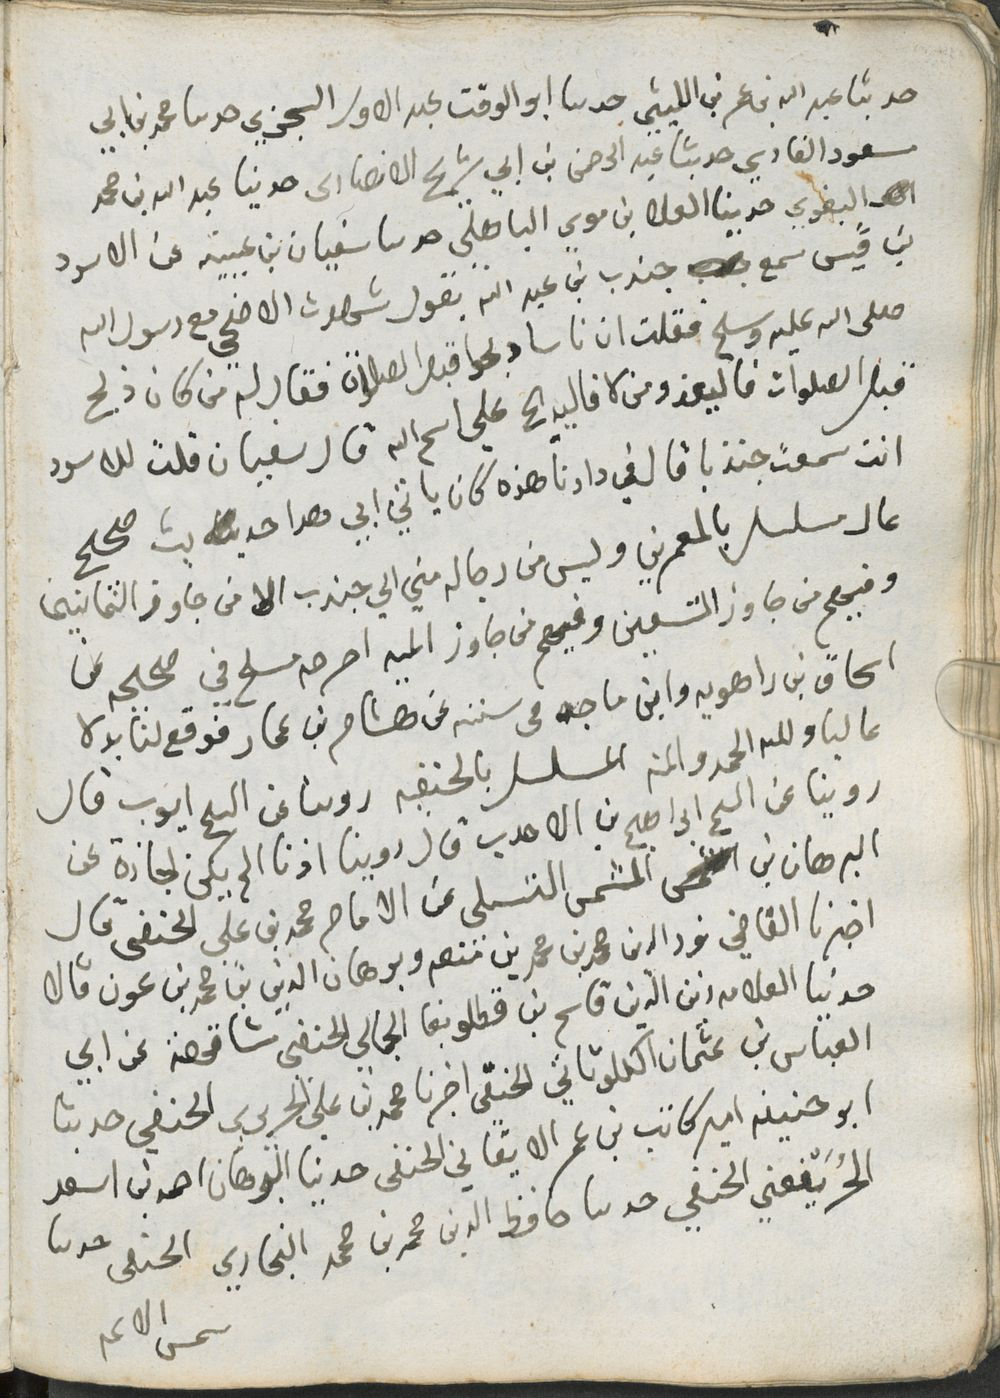 حدثنا عبد الله بن عمر بن الليثي حدثنا ابو الوقت عبد الاول السجزي حدثنا محمد بن ابي
مسعود الفارسي حدثنا عبد الرحمن بن ابي شريح الانصاري حدثنا عبد الله بن محمد
البغوي حدثنا العلا بن موسي الباهلي حدثنا سفيان بن عيينه عن الاسود
بن قيس سمع جندب بن عبد الله يقول شهدت الاضحي مع رسول الله
صلى الله عليه وسلم فقلت ان ناسا ذبحوا قبل الصلاة فقال له من كان ذبح
قبل الصلوات فاليعد ومن لا فاليذبح علي اسم الله قال سفيان قلت للاسود
انت سمعت جندبا قال في دارنا هذه كان ياتي ابي هذا حديث صحيح
عال مسلسل بالمعمرين وليس من رجاله مني الي جندب الا من جاوز الثمانين
وفيهم من جاوز التسعين وفيهم من جاوز الميه اخرجه مسلم في صحيحه عن
اسحاق بن راهويه وابن ماجه في سننه عن هشام بن عمار فوقع لنا بدلا
عاليا ولله الحمد والمنه المسلسل بالحنفيه روينا عن الشيخ ايوب قال
روينا عن الشيخ ابراهيم بن الاحدب قال روينا اذنا الم يكن اجازة عن
البرهان بن الشمس عن الامام محمد بن علي الحنفي قال
اخبرنا القاضي نور الدين محمد بن محمد بن منعه وبرهان الدين بن محمد بن عون قالا
حدثنا العلامه زين الدين قاسم بن قطلوبغا الجمالي الحنفي مشافهة عن ابي
العباس بن عثمان الكلوتاتي الحنفي اخبرنا محمد بن علي الحريري الحنفي حدثنا
ابو حنيفه امير كاتب بن عمر الاتقاني الحنفي حدثنا البرهان احمد بن اسعد
الخريفغني الحنفي حدثنا حافظ الدين محمد بن محمد البخاري الحنفي حدثنا
شمس الائمه